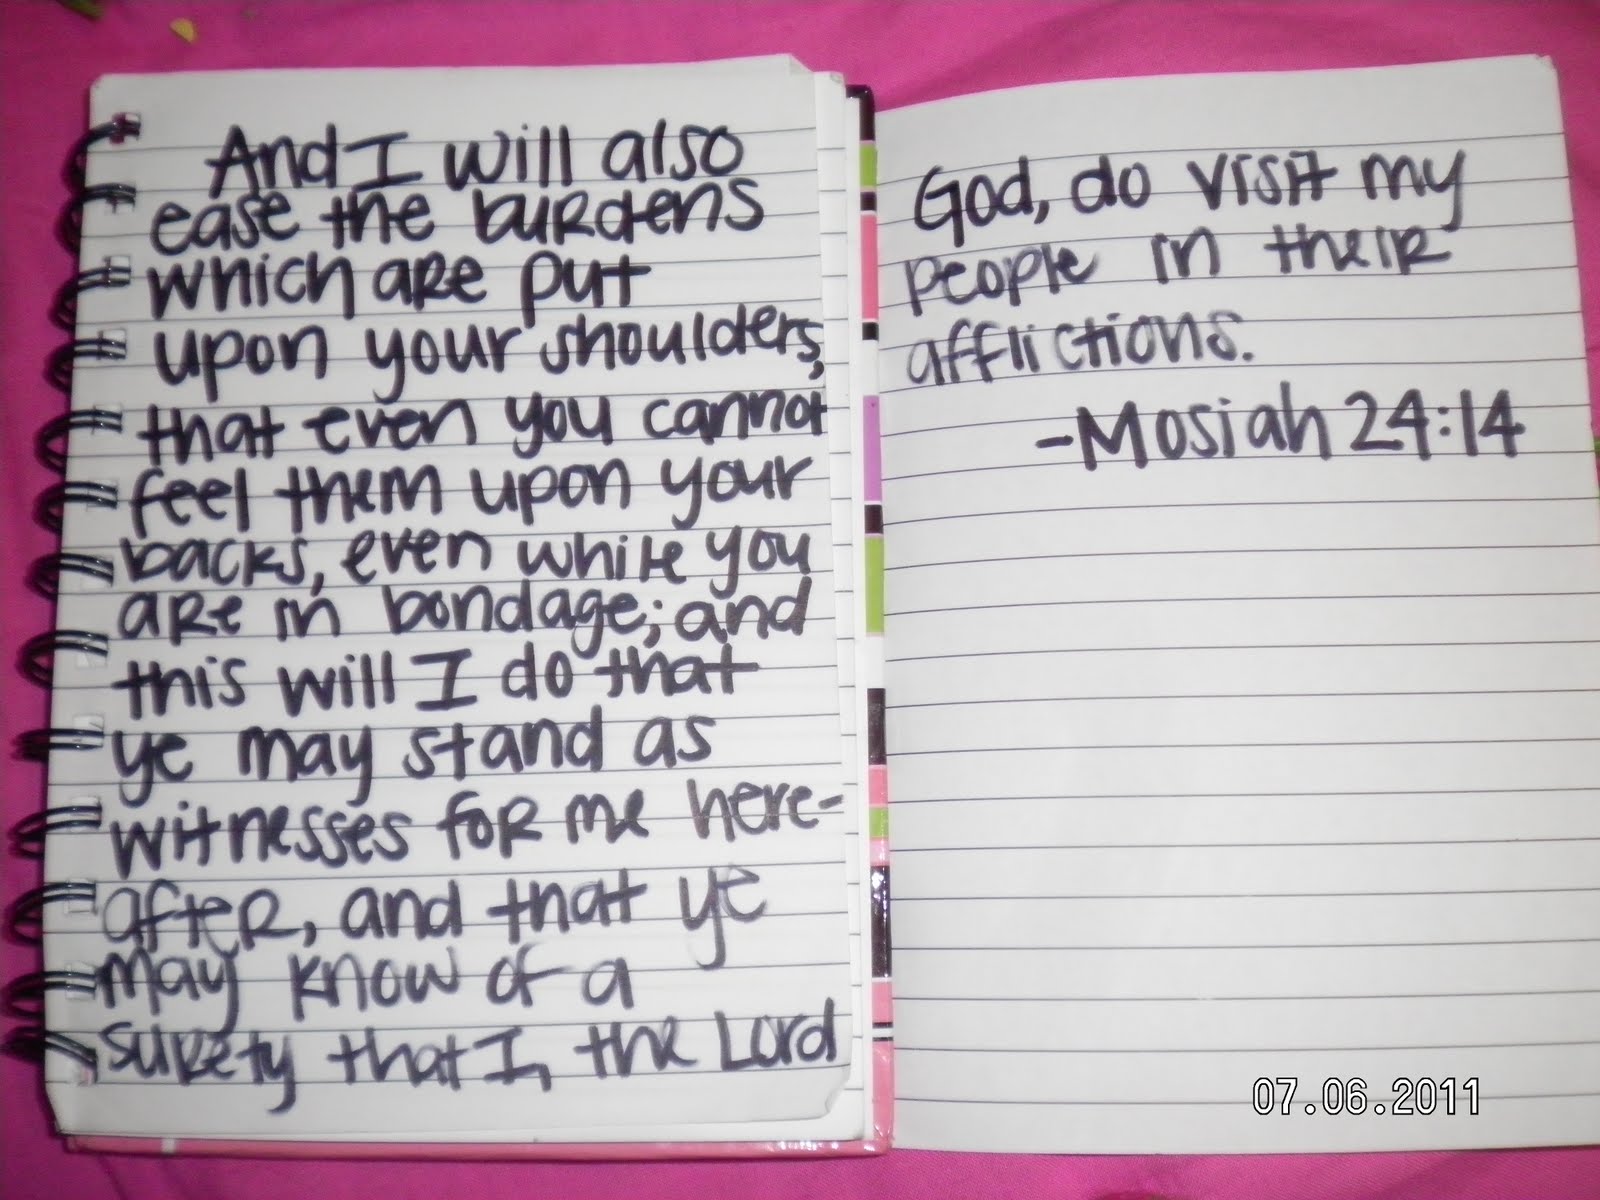 And I will also
ease the burdens
which are put
upon your shoulders,
that even you cannot
feel them upon your
backs, even while you
are in bondage; and
this will I do that
ye may stand as
witnesses for me here-
after, and that ye
may know of a
surety that I, the Lord
God, do visit my
people in their
afflictions.
-Mosiah 24:14
07.06.2011